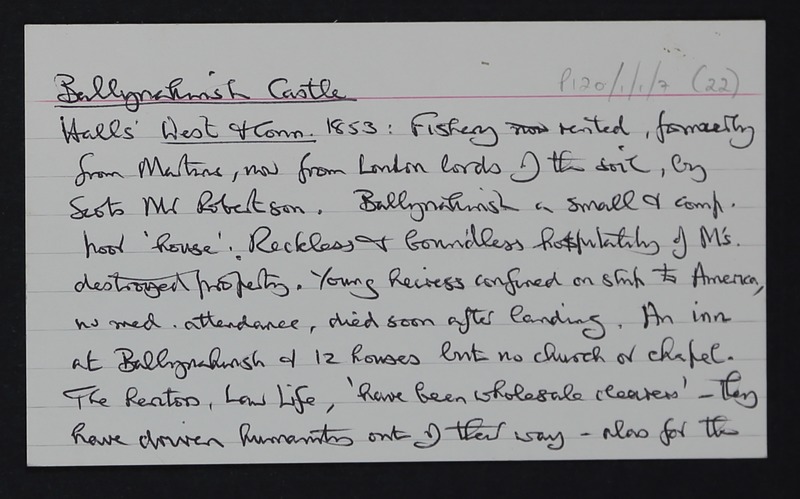 P120/1/1/7 (22)
Ballynahinch Castle
Halls' West & Conn. 1853: Fishery now rented, formerly
from Martins, now from London lords of the soil, by
Scots Mr Robertson. Ballynahinch a small & comp.
poor 'house'. Reckless & boundless hospitality of M's.
destroyed property. Young heiress confined on ship to America,
no med. attendance, died soon after landing. An inn
at Ballynahinch & 12 houses but no church or chapel.
The Law Life, 'have been wholesale clearers' – they
have driven humanities out of their way – also for the